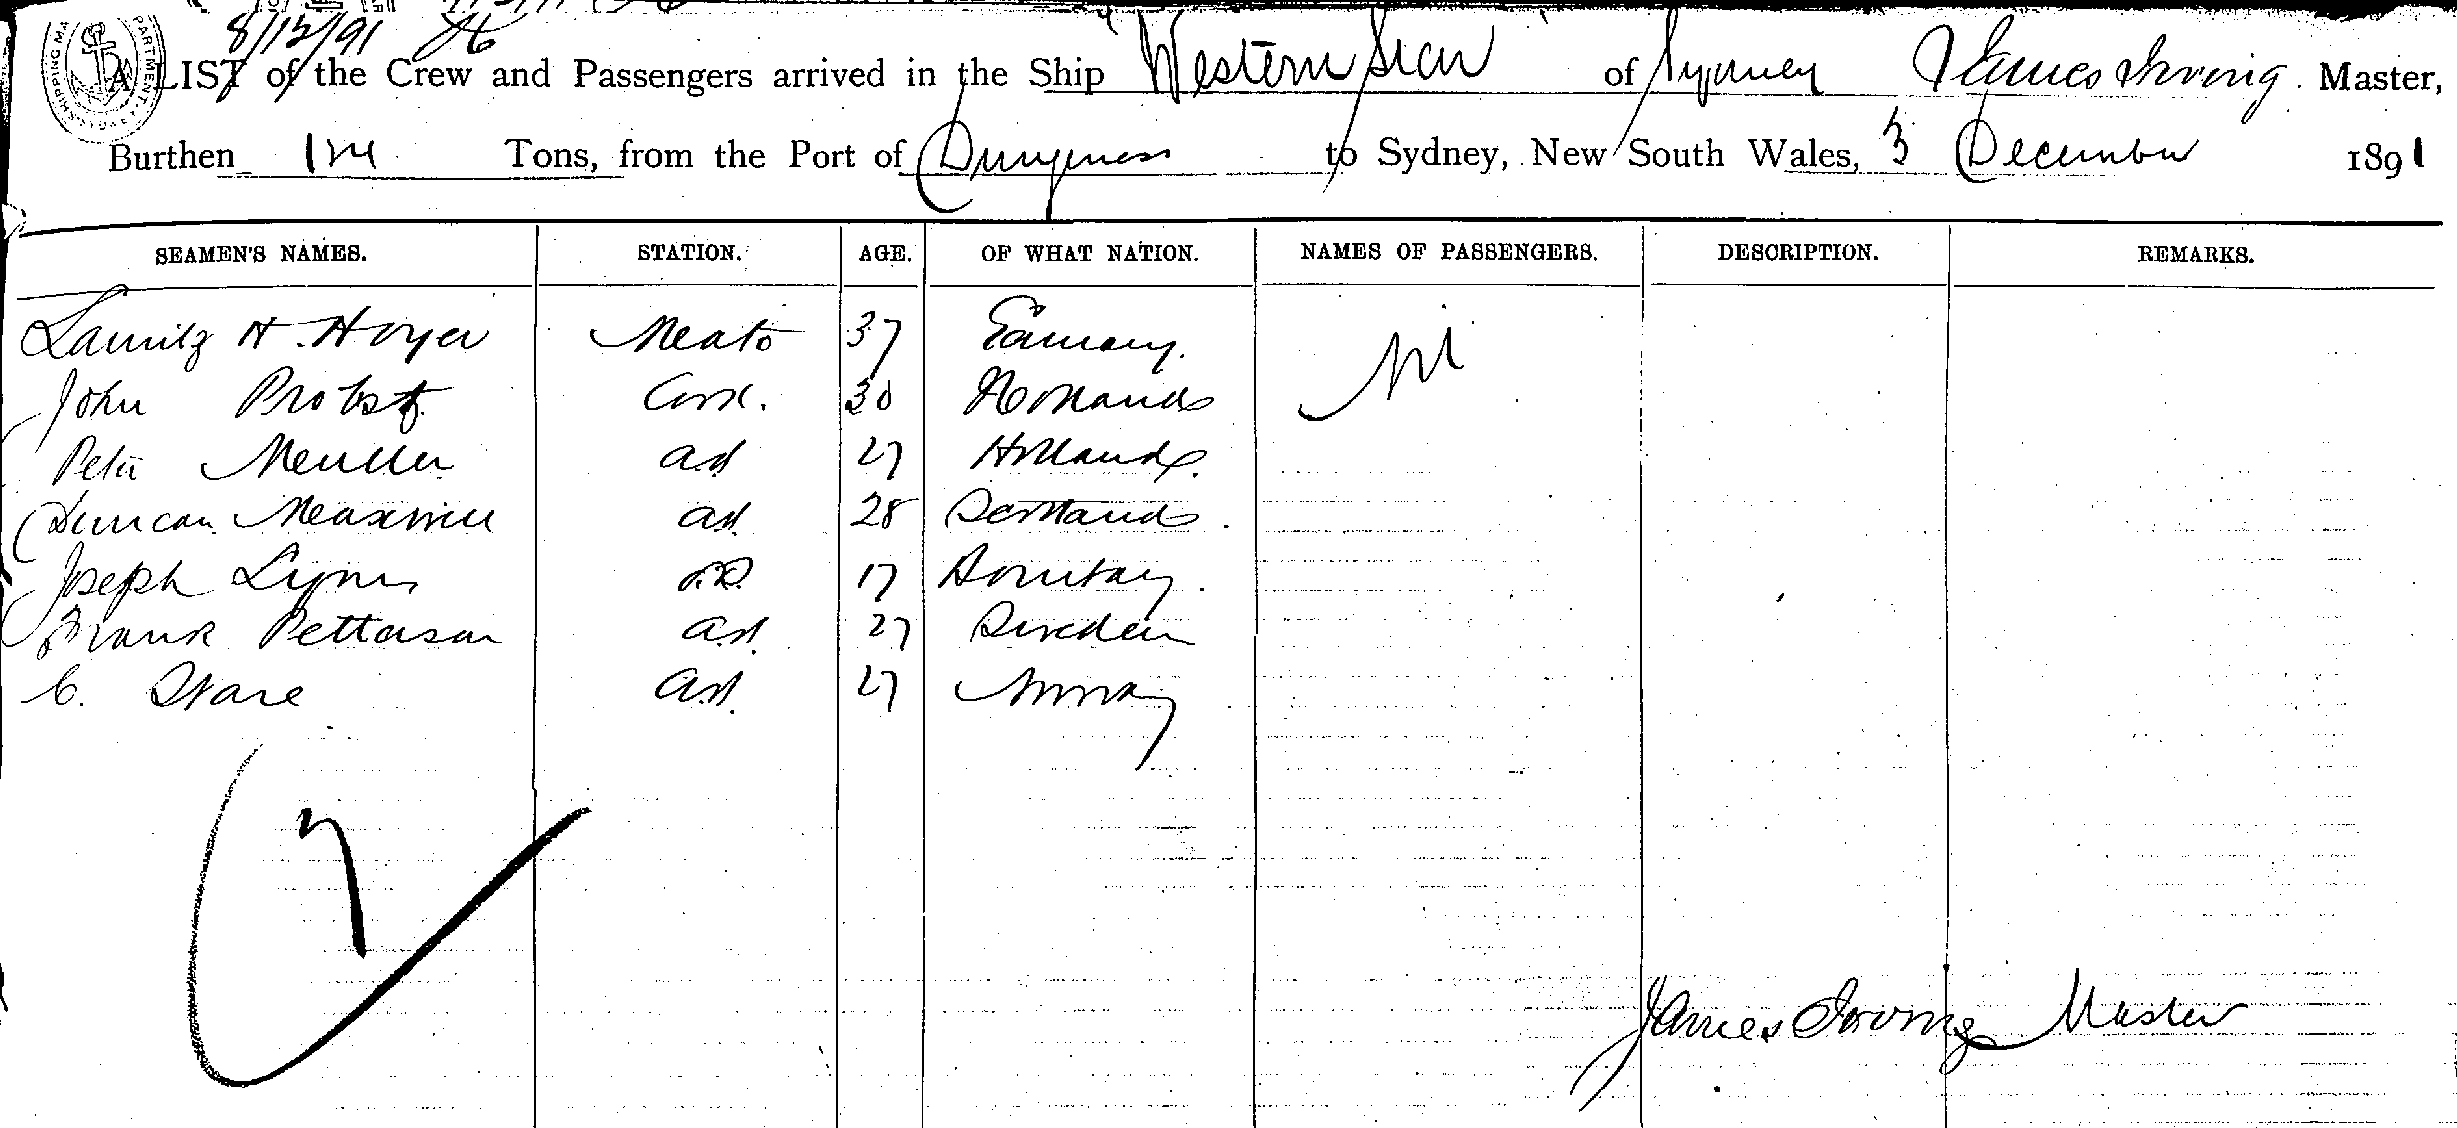 8/12/91
A LIST of the Crew and Passengers arrived in the Ship "Western Star" of Sydney James Irving. Master,
Burthen Tons, from the Port of Dungeness to Sydney, New South Wales, 3 December 1891
SEAMEN'S NAMES. STATION. AGE. OF WHAT NATION. NAMES OF PASSENGERS. DESCRIPTION. REMARKS.
Lauritz H. Hoyer 37 Nil
John Probst Cook. 30 Hollands
Peter Meuller 27 Holland
Duncan Maxwell 28 Scotland
Joseph Lyons 17 Bombay
Frank Petterson 27 Sweden
C. 27 Norway
7
James Irving Master